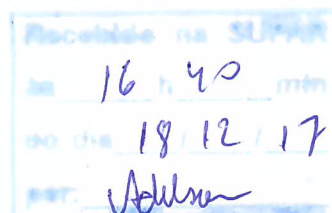 Recebido na SUPAR
às 16 h 40 min
do dia 18 / 12 / 17
por: Adelson